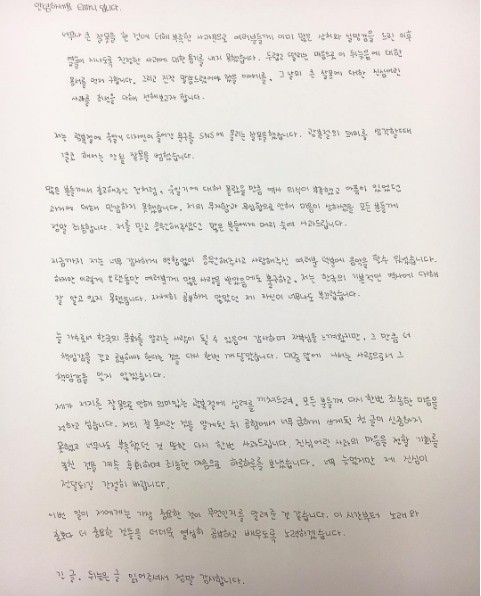 안녕하세요 티파니입니다.
너무나 큰 잘못을 한 것에 더해 부족한 사과문으로 여러분들께 이미 많은 상처와 실망감을 드린 이후
열흘이 지나도록 진정한 사과에 대한 용기를 내지 못했습니다. 두렵고 떨리는 마음으로 이 뒤늦음에 대한
용서를 먼저 구합니다. 그리고 진작 말씀드렸어야 했을 이야기를, 그 날의 큰 잘못에 대한 진심어린
사과를 편지를 다해 전해보고자 합니다.
저는 광복절에 욱일기 디자인이 들어간 문구를 SNS에 올리는 잘못을 했습니다. 광복절의 의미를 생각할때
결코 해서는 안될 잘못을 범했습니다.
많은 분들께서 충고해주신 것처럼, 욱일기에 대해 몰랐을 만큼 역사 의식이 부족했고 아픔이 있었던
과거에 대해 민감하지 못했습니다. 저의 무지함과 무심함으로 인해 마음이 상하셨을 모든 분들께
정말 죄송합니다. 저를 믿고 응원해주셨던 많은 분들에게 머리 숙여 사과드립니다.
지금까지 저는 너무 감사하게 변함없이 응원해주시고 사랑해주신 여러분 덕분에 음악을 할수 있었습니다.
하지만 이렇게 오랜동안 여러분께 많은 사랑을 받았음에도 불구하고, 저는 한국의 기본적인 역사에 대해
잘 알고 있지 못했습니다. 자세히 공부하지 않았던 제 자신이 너무나도 부끄럽습니다.
늘 가수로서 한국의 문화를 알리는 사람이 될 수 있음에 감사하며 자부심을 느껴왔지만, 그 만큼 더
책임감을 갖고 공부해야 한다는 것을 다시 한번 깨달았습니다. 대중 앞에 나서는 사람으로서 그
책임감을 잊지 않겠습니다.
제가 저지른 잘못으로 인해 의미있는 광복절에 심려를 끼쳐드려, 모든 분들께 다시 한번 죄송한 마음을
전하고 싶습니다. 저의 잘못이란 것을 알게된 뒤 공항에서 너무 급하게 쓰게된 첫 글이 신중하지
못했고 너무나도 부족했던 것 또한 다시 한번 사과드립니다. 진심어린 사과의 마음을 전할 기회를
놓친 것을 계속 후회하며 죄송한 마음으로 하루하루를 보냈습니다. 너무 늦었지만 제 진심이
전달되길 간절히 바랍니다.
이번 일이 저에게는 가장 중요한 것이 무엇인지를 알려준 것 같습니다. 이 시간부터는 노래와
춤보다 더 중요한 것들을 더더욱 열심히 공부하고 배우도록 노력하겠습니다.
긴 글, 뒤늦은 글 읽어주셔서 정말 감사합니다.